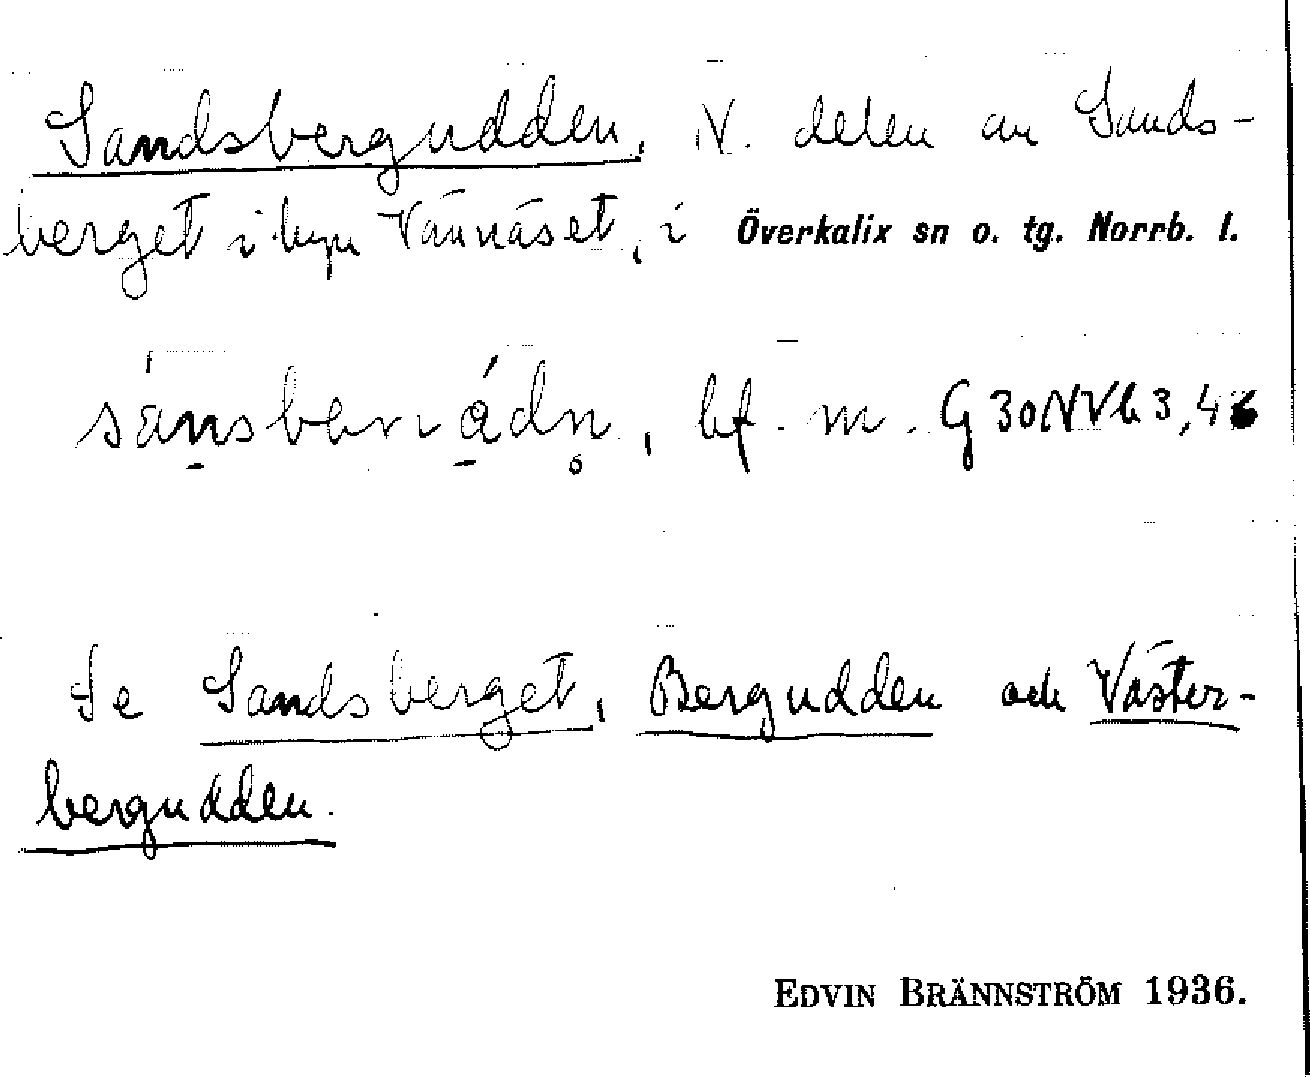 Sandsbergudden, N. delen av Sands-
berget i byn Vännäset, i Överkalix sn o. tg. Norrb. l.
bf. m. G 30 NVh 3,4
Se Sandsberget, Bergudden och Väster-
bergudden.
EDVIN BRÄNNSTRÖM 1936.